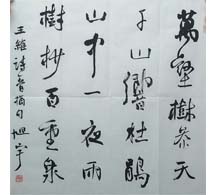 萬壑樹參天
千山響杜鵑
山中一夜雨
樹杪百重泉
王維詩摘句 旭宇